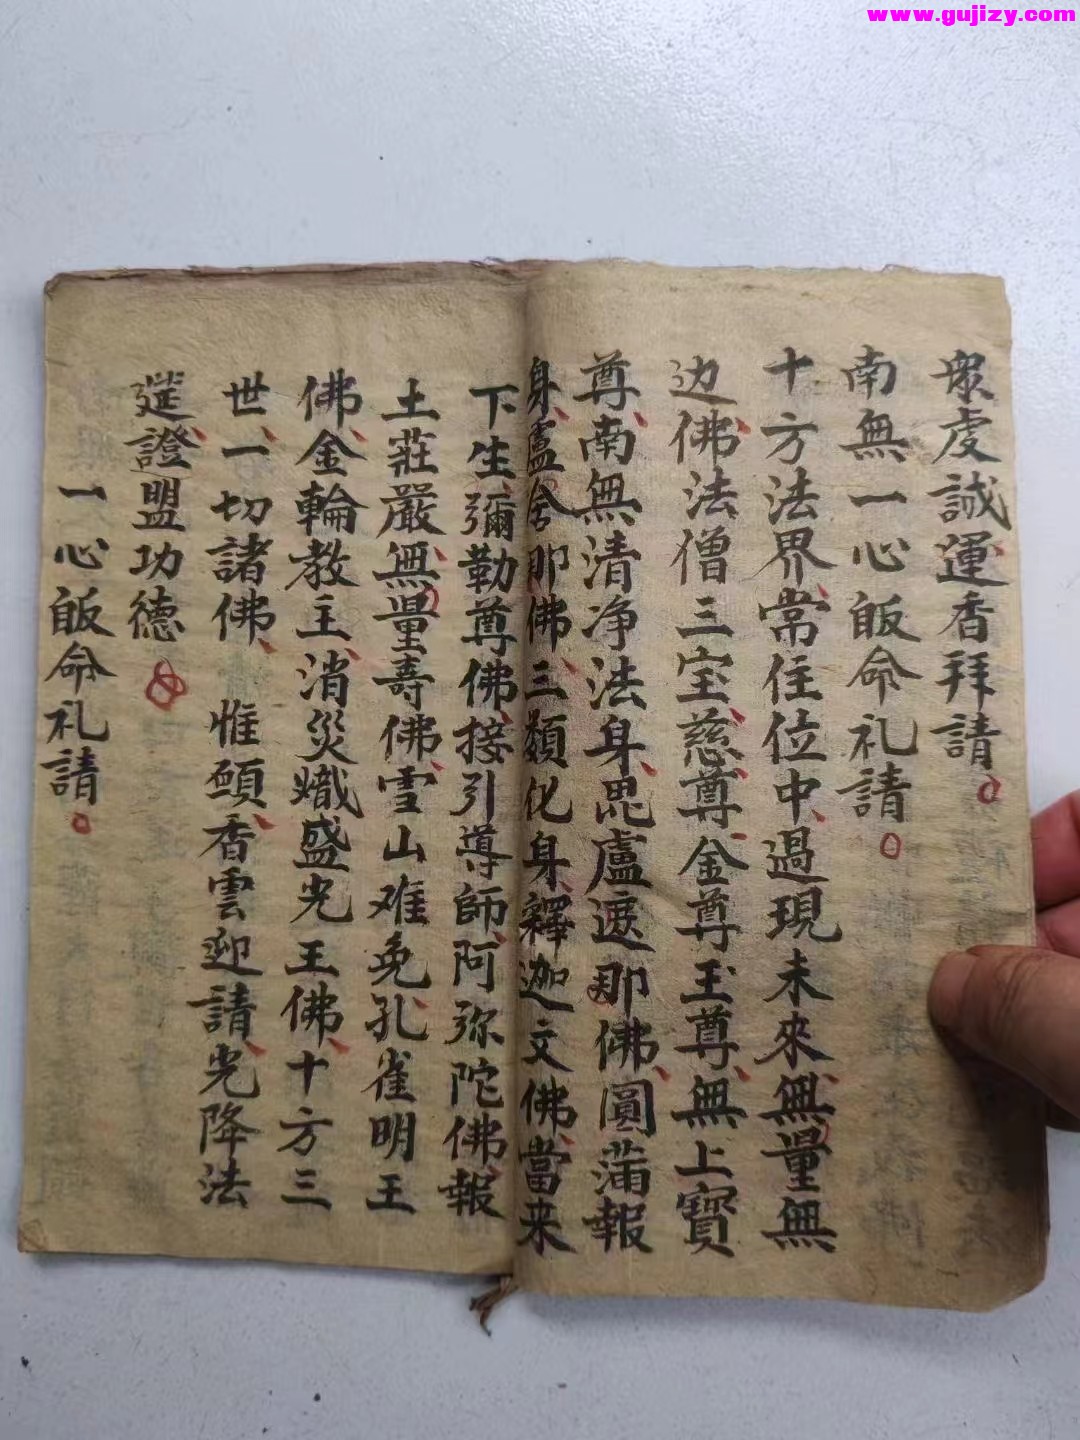 www.gujizy.com
衆虔誠運香拜請
南無一心皈命礼請
十方法界常住位中過現未來無量無
边佛法僧三宝慈尊金尊玉尊無上寳
尊南無清净法身毘盧遮那佛圓蒲報
身盧舍那佛三類化身釋迦文佛當来
下生彌勒尊佛接引導師阿弥陀佛報
土莊嚴無量壽佛雪山难免孔雀明王
佛金輪教主消災熾盛光王佛十方三
世一切諸佛 惟願香雲迎請光降法
筵證盟功德
一心皈命礼請